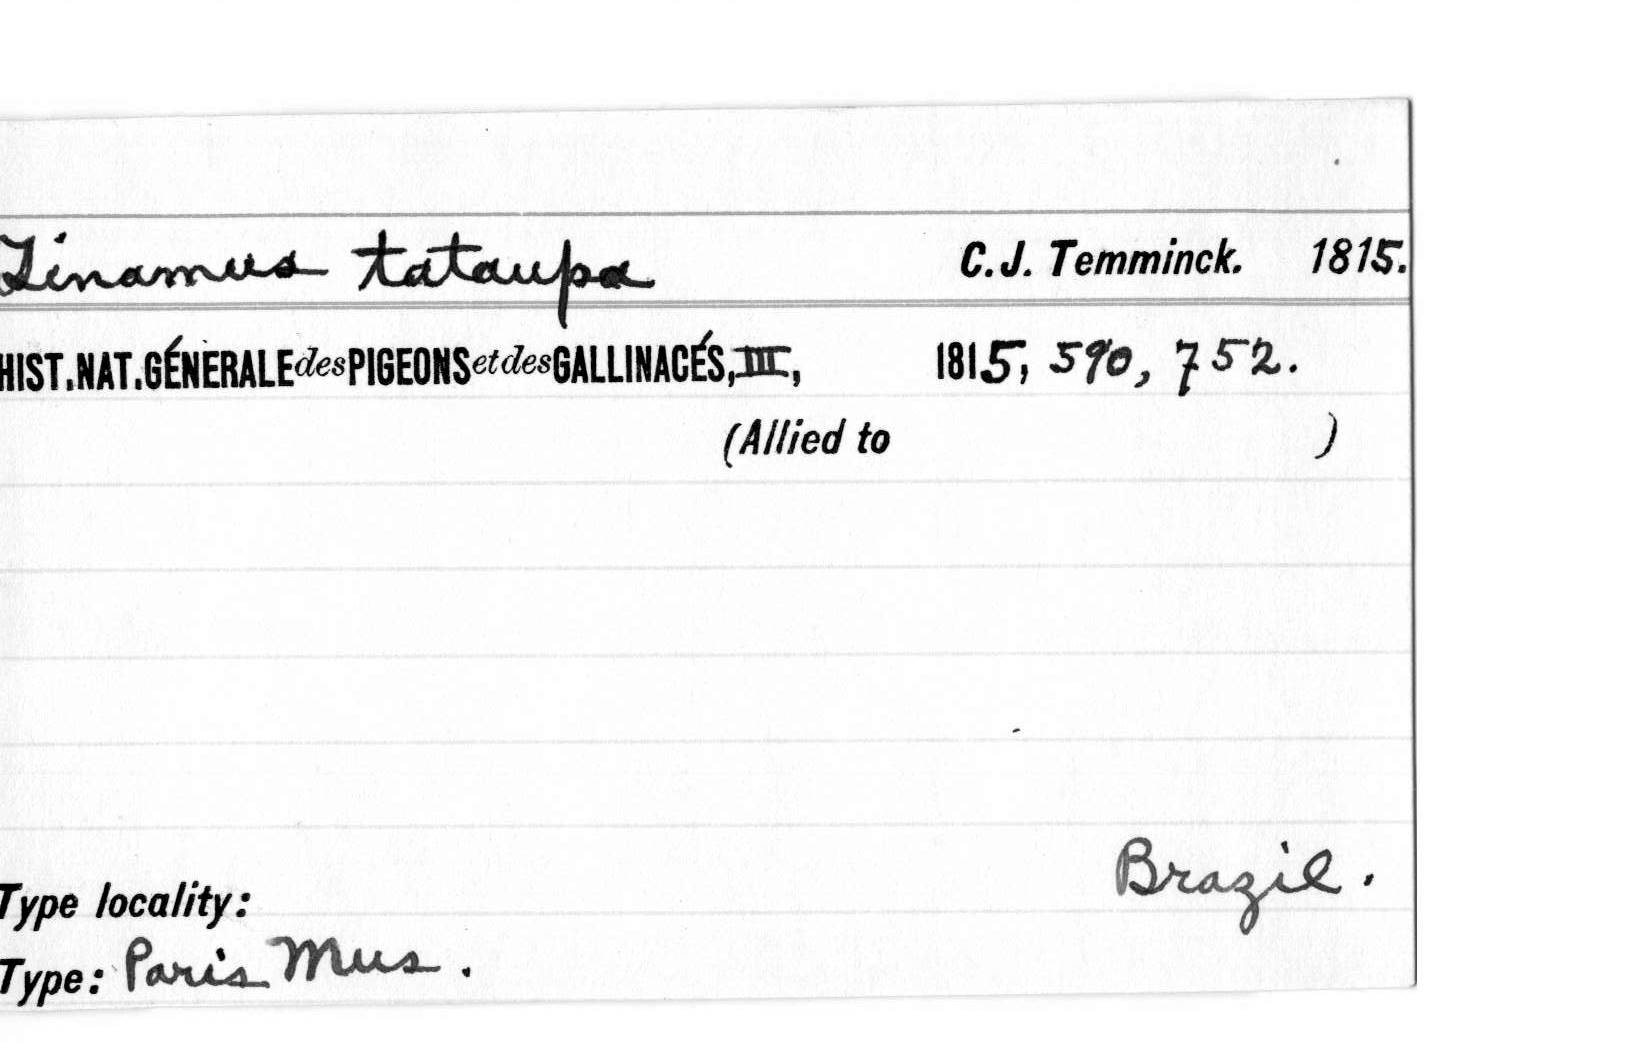 Tinamus tataupa C.J. Temminck. 1815.
HIST.NAT.GÉNERALE des PIGEONS et des GALLINACÉS, III, 1815, 590, 752.
(Allied to )
Brazil.
Type locality:
Type: Paris Mus.